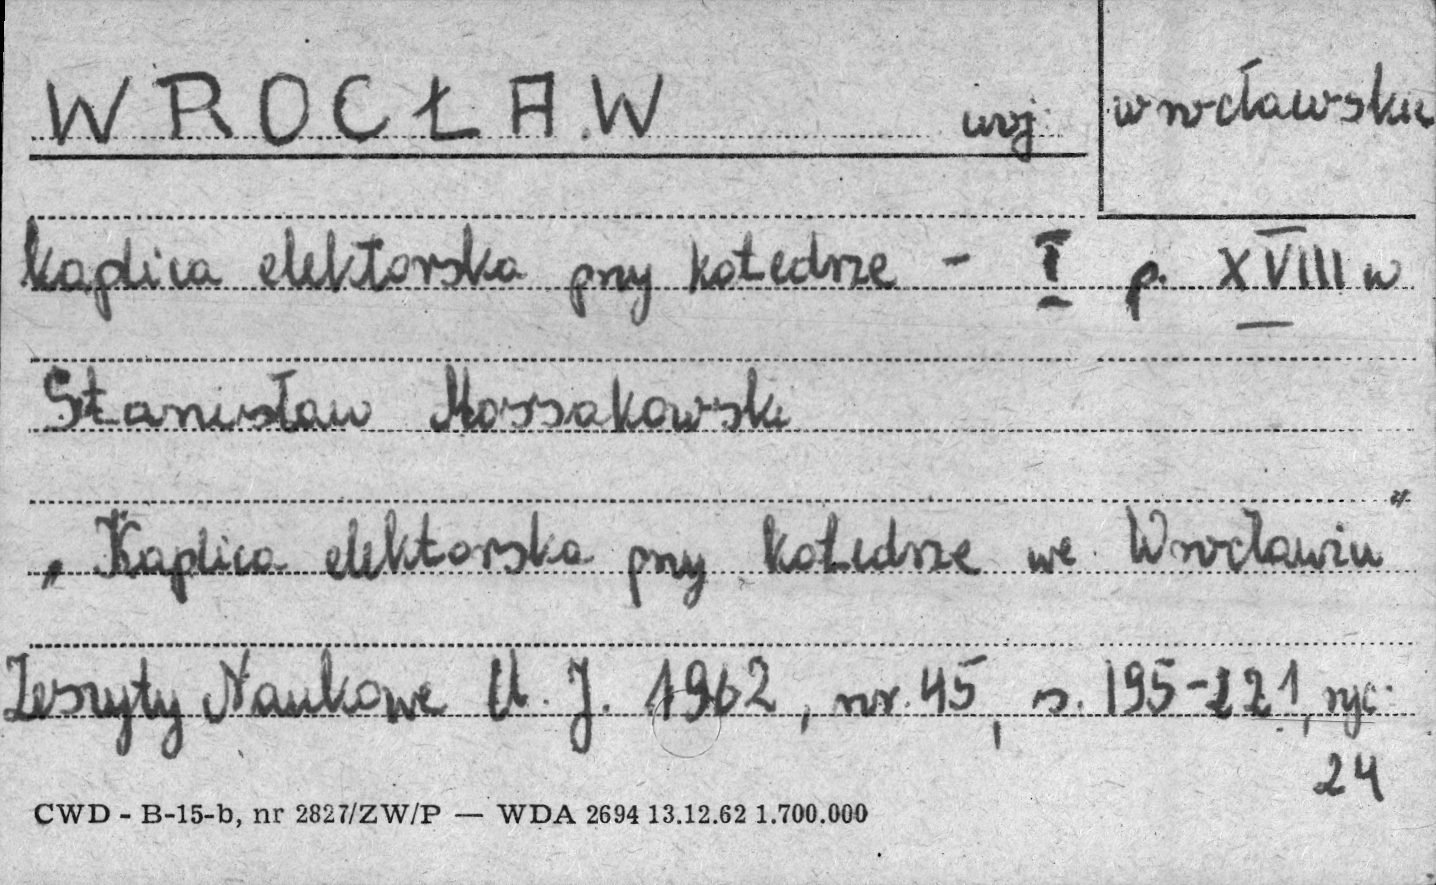 WROCŁAW woj. wrocławskie
Kaplica elektorska przy katedrze - I p. XVIII w
Stanisław Mossakowski
„Kaplica elektorska przy katedrze we Wrocławiu"
Zeszyty Naukowe U. J. 1962, nr. 45, s. 195-221, ryc.
24
CWD - B-15-b, nr 2827/ZW/P — WDA 2694 13.12.62 1.700.000